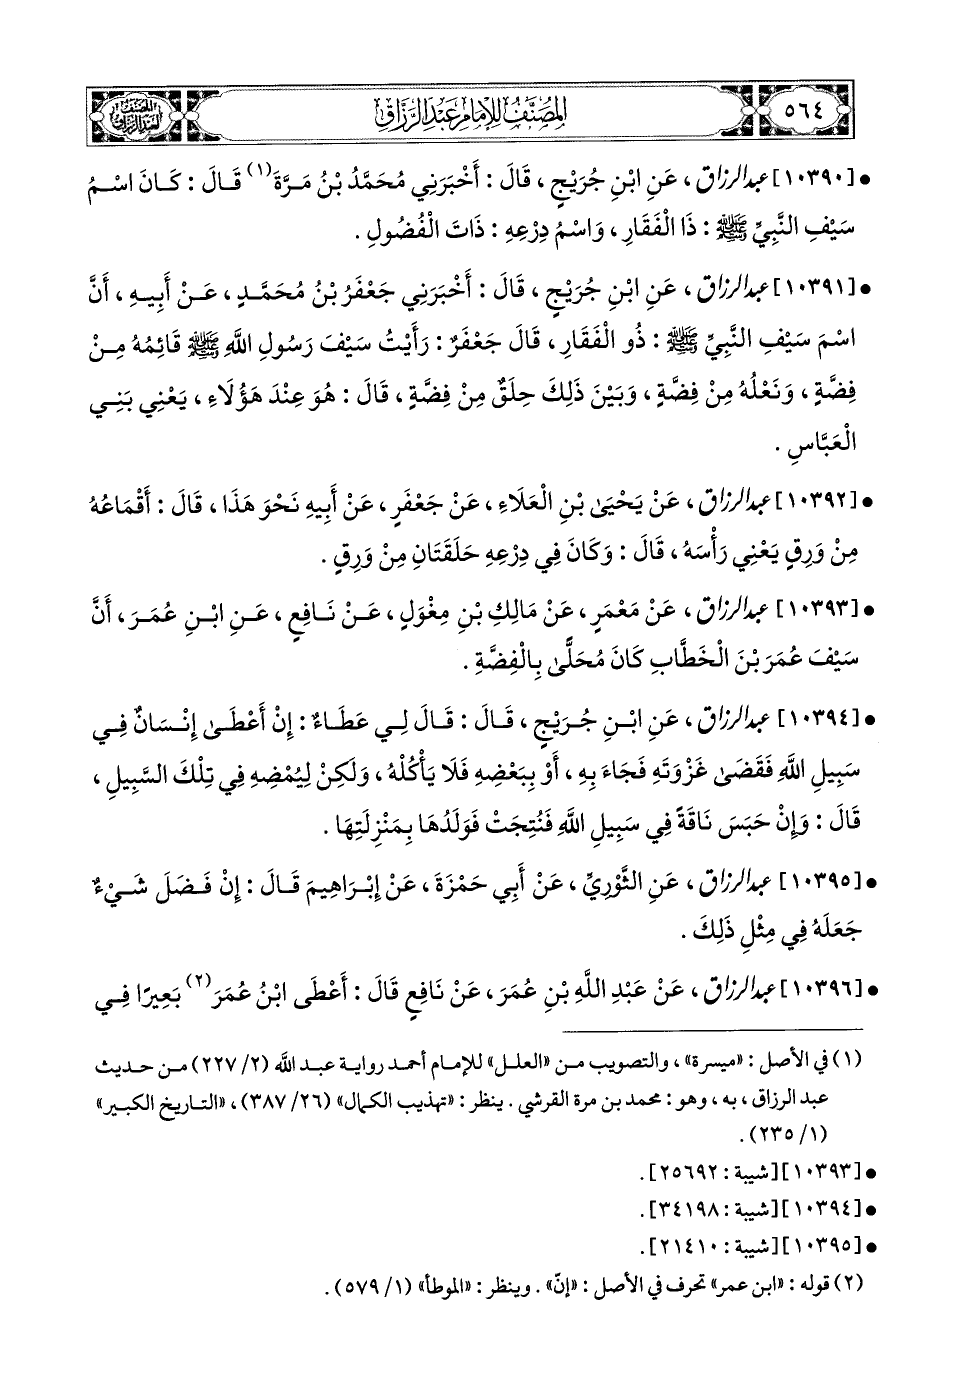 ٥٦٤
المصنف للإمام عبد الرزاق
المصنف لعبد الرزاق
• [١٠٣٩٠] عبد الرزاق، عَنِ ابْنِ جُرَيْجٍ، قَالَ: أَخْبَرَنِي مُحَمَّدُ بْنُ مَرَّةَ (١) قَالَ: كَانَ اسْمُ
سَيْفِ النَّبِيِّ ﷺ: ذَا الْفَقَارِ، وَاسْمُ دِرْعِهِ: ذَاتَ الْفُضُولِ.
• [١٠٣٩١] عبد الرزاق، عَنِ ابْنِ جُرَيْجٍ، قَالَ: أَخْبَرَنِي جَعْفَرُ بْنُ مُحَمَّدٍ، عَنْ أَبِيهِ، أَنَّ
اسْمَ سَيْفِ النَّبِيِّ ﷺ: ذُو الْفَقَارِ، قَالَ جَعْفَرٌ: رَأَيْتُ سَيْفَ رَسُولِ اللَّهِ ﷺ قَائِمُهُ مِنْ
فِضَّةٍ، وَنَعْلُهُ مِنْ فِضَّةٍ، وَبَيْنَ ذَلِكَ حِلَقٌ مِنْ فِضَّةٍ، قَالَ: هُوَ عِنْدَ هَؤُلَاءِ، يَعْنِي بَنِي
الْعَبَّاسِ.
• [١٠٣٩٢] عبد الرزاق، عَنْ يَحْيَىٰ بْنِ الْعَلَاءِ، عَنْ جَعْفَرٍ، عَنْ أَبِيهِ نَحْوَ هَذَا، قَالَ: أَقْمَاعُهُ
مِنْ وَرِقٍ يَعْنِي رَأْسَهُ، قَالَ: وَكَانَ فِي دِرْعِهِ حَلَقَتَانِ مِنْ وَرِقٍ.
• [١٠٣٩٣] عبد الرزاق، عَنْ مَعْمَرٍ، عَنْ مَالِكِ بْنِ مِغْوَلٍ، عَنْ نَافِعٍ، عَنِ ابْنِ عُمَرَ، أَنَّ
سَيْفَ عُمَرَ بْنَ الْخَطَّابِ كَانَ مُحَلًّىٰ بِالْفِضَّةِ.
• [١٠٣٩٤] عبد الرزاق، عَنِ ابْنِ جُرَيْجٍ، قَالَ: قَالَ لِي عَطَاءٌ: إِنْ أَعْطَىٰ إِنْسَانٌ فِي
سَبِيلِ اللَّهِ فَقَضَىٰ غَزْوَتَهِ فَجَاءَ بِهِ، أَوْ بِبَعْضِهِ فَلَا يَأْكُلْهُ، وَلَكِنْ لِيُمْضِهِ فِي تِلْكَ السَّبِيلِ،
قَالَ: وَإِنْ حَبَسَ نَاقَةً فِي سَبِيلِ اللَّهِ فَنُتِجَتْ فَوَلَدُهَا بِمَنْزِلَتِهَا.
• [١٠٣٩٥] عبد الرزاق، عَنِ الثَّوْرِيِّ، عَنْ أَبِي حَمْزَةَ، عَنْ إِبْرَاهِيمَ قَالَ: إِنْ فَضَلَ شَيْءٌ
جَعَلَهُ فِي مِثْلِ ذَلِكَ.
• [١٠٣٩٦] عبد الرزاق، عَنْ عَبْدِ اللَّهِ بْنِ عُمَرَ، عَنْ نَافِعٍ قَالَ: أَعْطَى ابْنُ عُمَرَ (٢) بَعِيرًا فِي
(١) في الأصل: «ميسرة»، والتصويب من «العلل» للإمام أحمد رواية عبد الله (٢/ ٢٢٧) من حديث
عبد الرزاق، به، وهو: محمد بن مرة القرشي. ينظر: «تهذيب الكمال» (٢٦/ ٣٨٧)، «التاريخ الكبير»
(١/ ٢٣٥).
• [١٠٣٩٣] [شيبة: ٢٥٦٩٢].
• [١٠٣٩٤] [شيبة: ٣٤١٩٨].
• [١٠٣٩٥] [شيبة: ٢١٤١٠].
(٢) قوله: «ابن عمر» تحرف في الأصل: «إنّ». وينظر: «الموطأ» (١/ ٥٧٩).